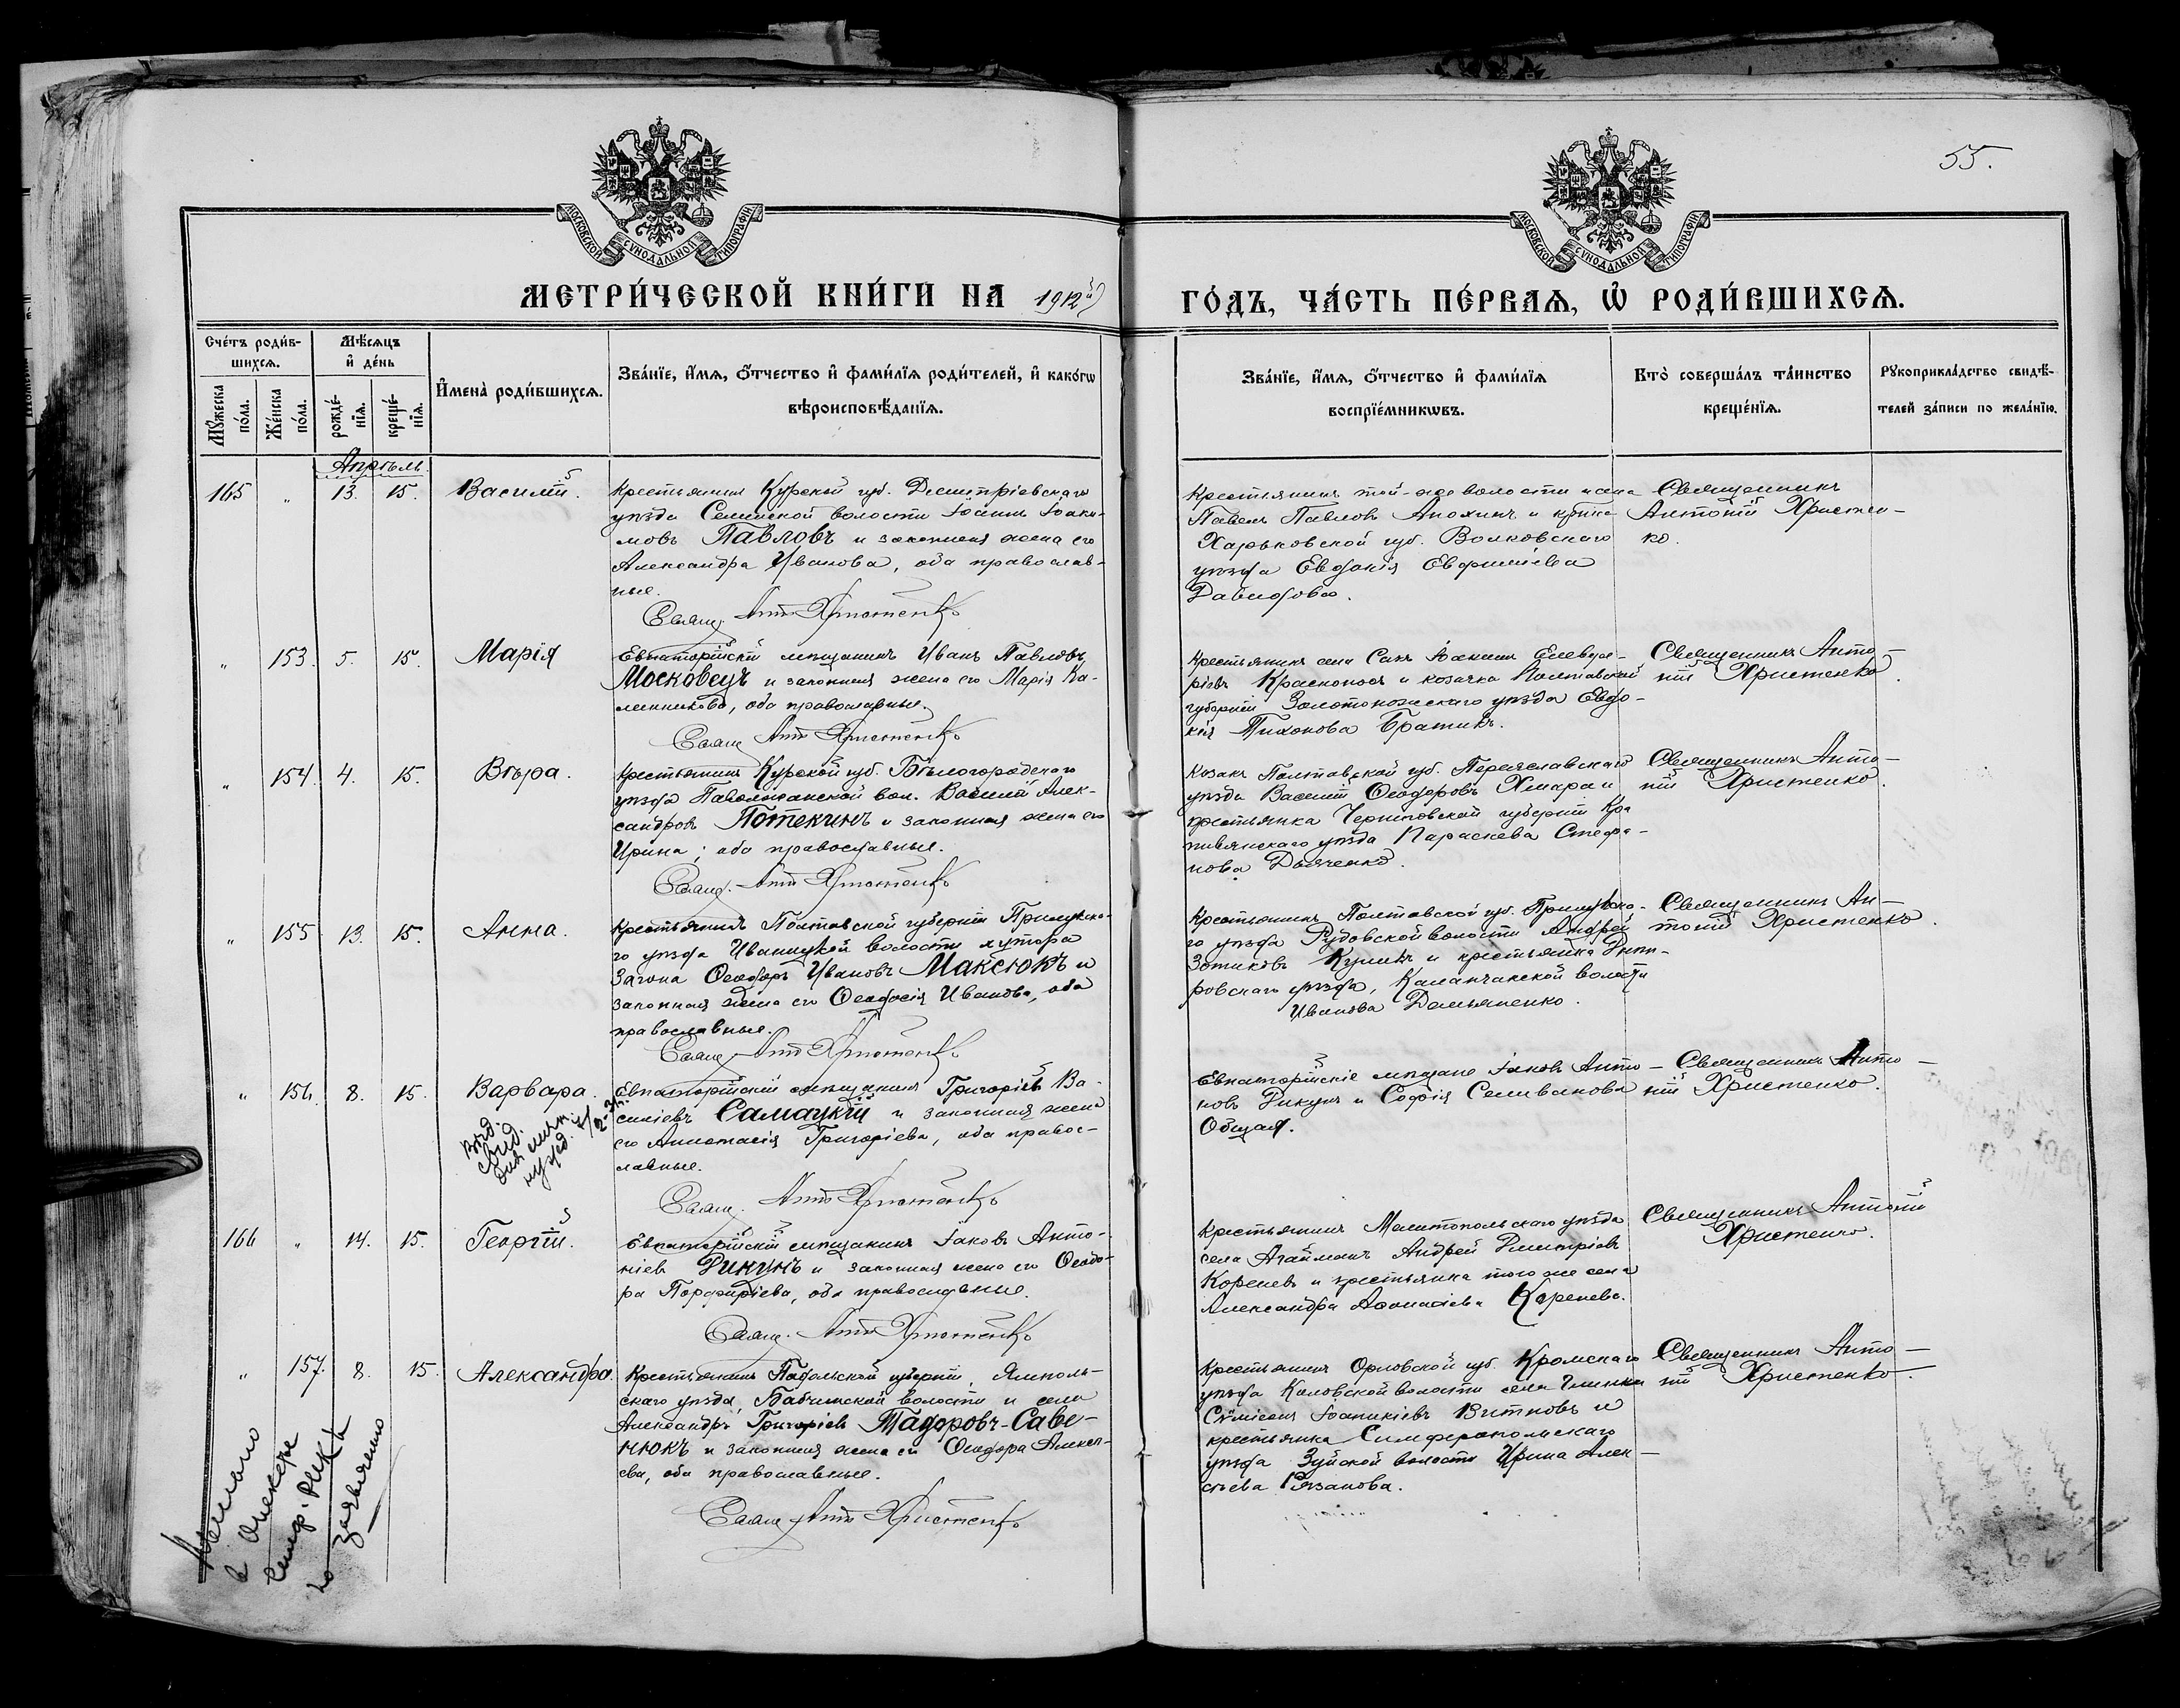 55.
МОСКОВСКОЙ СѴНОДАЛЬНОЙ ТИПОГРАФІИ
МОСКОВСКОЙ СѴНОДАЛЬНОЙ ТИПОГРАФІИ
МЕТРИ́ЧЕСКОЙ КНИ́ГИ НА 1912й
ГО́ДЪ, ЧА́СТЬ ПЕ́РВАѦ, Ѡ҆ РОДИ́ВШИХСѦ.
Сче́тъ роди́в-
шихсѧ.
Мꙋ́жеска по́ла.
Же́нска по́ла.
Мѣ́сѧцъ
и҆ де́нь
рожде́-
нїѧ.
креще́-
нїѧ.
И҆мена̀ роди́вшихсѧ.
Зва́нїе, и҆́мѧ, ѻ҆́тчество и҆ фами́лїѧ роди́телей, и҆ како́гѡ
вѣроисповѣ́данїѧ.
Зва́нїе, и҆́мѧ, ѻ҆́тчество и҆ фами́лїѧ
воспрїе́мникѡвъ.
Кто̀ соверша́лъ та́инство
креще́нїѧ.
Рꙋкоприкла́дство свидѣ́-
телей за́писи по жела́нїю.
Апрѣль
165 " 13. 15. Василій.
Крестьянинъ Курской губ. Дмитріевскаго
уѣзда Селинской волости Іоаннъ Іоаки-
мовъ Павловъ и законная жена его
Александра Иванова, оба православ-
ные.
Свящ. Ант Христенко
Крестьянинъ той-же волости
Павелъ Павловъ Анохинъ и
Харьковской губ. Волковскаго
уѣзда Евдокія Евфиміева
Давидова.
Священникъ
Антоній Христен-
ко.
" 153. 5. 15. Марія
Евпаторійскій мѣщанинъ Иванъ Павловъ
Московецъ и законная жена его Марія Ка-
линникова, оба православные.
Свящ Ант Христенко
Крестьянинъ села Сакъ Іоакимъ Елевѳе-
ріевъ Красноносъ и козачка Полтавской
губерніи Золотоношскаго уѣзда Евдо-
кія Тихонова Братикъ.
Священникъ Анто-
ній Христенко.
" 154. 4. 15. Вѣра.
Крестьянинъ Курской губ. Бѣлогородскаго
уѣзда вол. Василій Алек-
сандровъ Потекинъ и законная жена его
Ирина; оба православные.
Свящ. Ант Христенко
Козакъ Полтавской губ. Переяславскаго
уѣзда Василій Ѳеодоровъ Хмара и
крестьянка Черниговской губерніи Кро
левецкаго уѣзда Параскева Стефа-
нова Дьяченко.
Священникъ Анто-
ній Христенко.
" 155 13. 15. Анна.
Крестьянинъ Полтавской губерніи Прилукска-
го уѣзда Иваницкой волости хутора
Загона Ѳеодоръ Ивановъ Максюкъ и
законная жена его Ѳеодосія Иванова, оба
православные.
Свящ. Ант Христенко
Крестьянинъ Полтавской губ. Прилукска-
го уѣзда Рудовской волости Андрей
Зотиковъ Куликъ и крестьянка Днѣп-
ровскаго уѣзда, Каланчакской волости
Иванова Демьяненко.
Священникъ Ан-
тоній Христенко.
" 156. 8. 15. Варвара.
Выд.
свид.
для личн.
нужд.
Евпаторійскій мѣщанинъ Григорій Ва-
силіевъ Самацкій и законная жена
его Анастасія Григоріева, оба правос-
лавные.
Свящ. Ант Христенко
Евпаторійскіе мѣщане Іаковъ Анто-
новъ Дикунъ и Софія Селиванова
Общая.
Священникъ Анто-
ній Христенко.
166 " 14. 15. Георгій.
Евпаторійскій мѣщанинъ Іаковъ Анто-
ніевъ Дикунъ и законная жена его Ѳеодо-
ра Порфиріева, оба православные.
Свящ. Ант Христенко
Крестьянинъ Мелитопольскаго уѣзда
села Агайманъ Андрей Дмитріевъ
Кореневъ и крестьянка того же села
Александра Аѳанасіева Коренева.
Священникъ Антоній
Христенко.
" 157. 8. 15. Александра.
Крестьянинъ Подольской губерніи, Ямполь-
скаго уѣзда, Бабчинской волости и села
Александръ Григоріевъ Тадоровъ-Саве-
нюкъ и законная жена его Ѳеодора Алексѣ-
ева, оба православные.
Свящ Ант Христенко
Крестьянинъ Орловской губ. Кромскаго
уѣзда волости села
Іоаникіевъ Витковъ и
крестьянка Симферопольскаго
уѣзда Зуйской волости Ирина Алек-
сѣева Рязанова.
Священникъ Анто-
ній Христенко.
Симф. РИКа
по заявлению